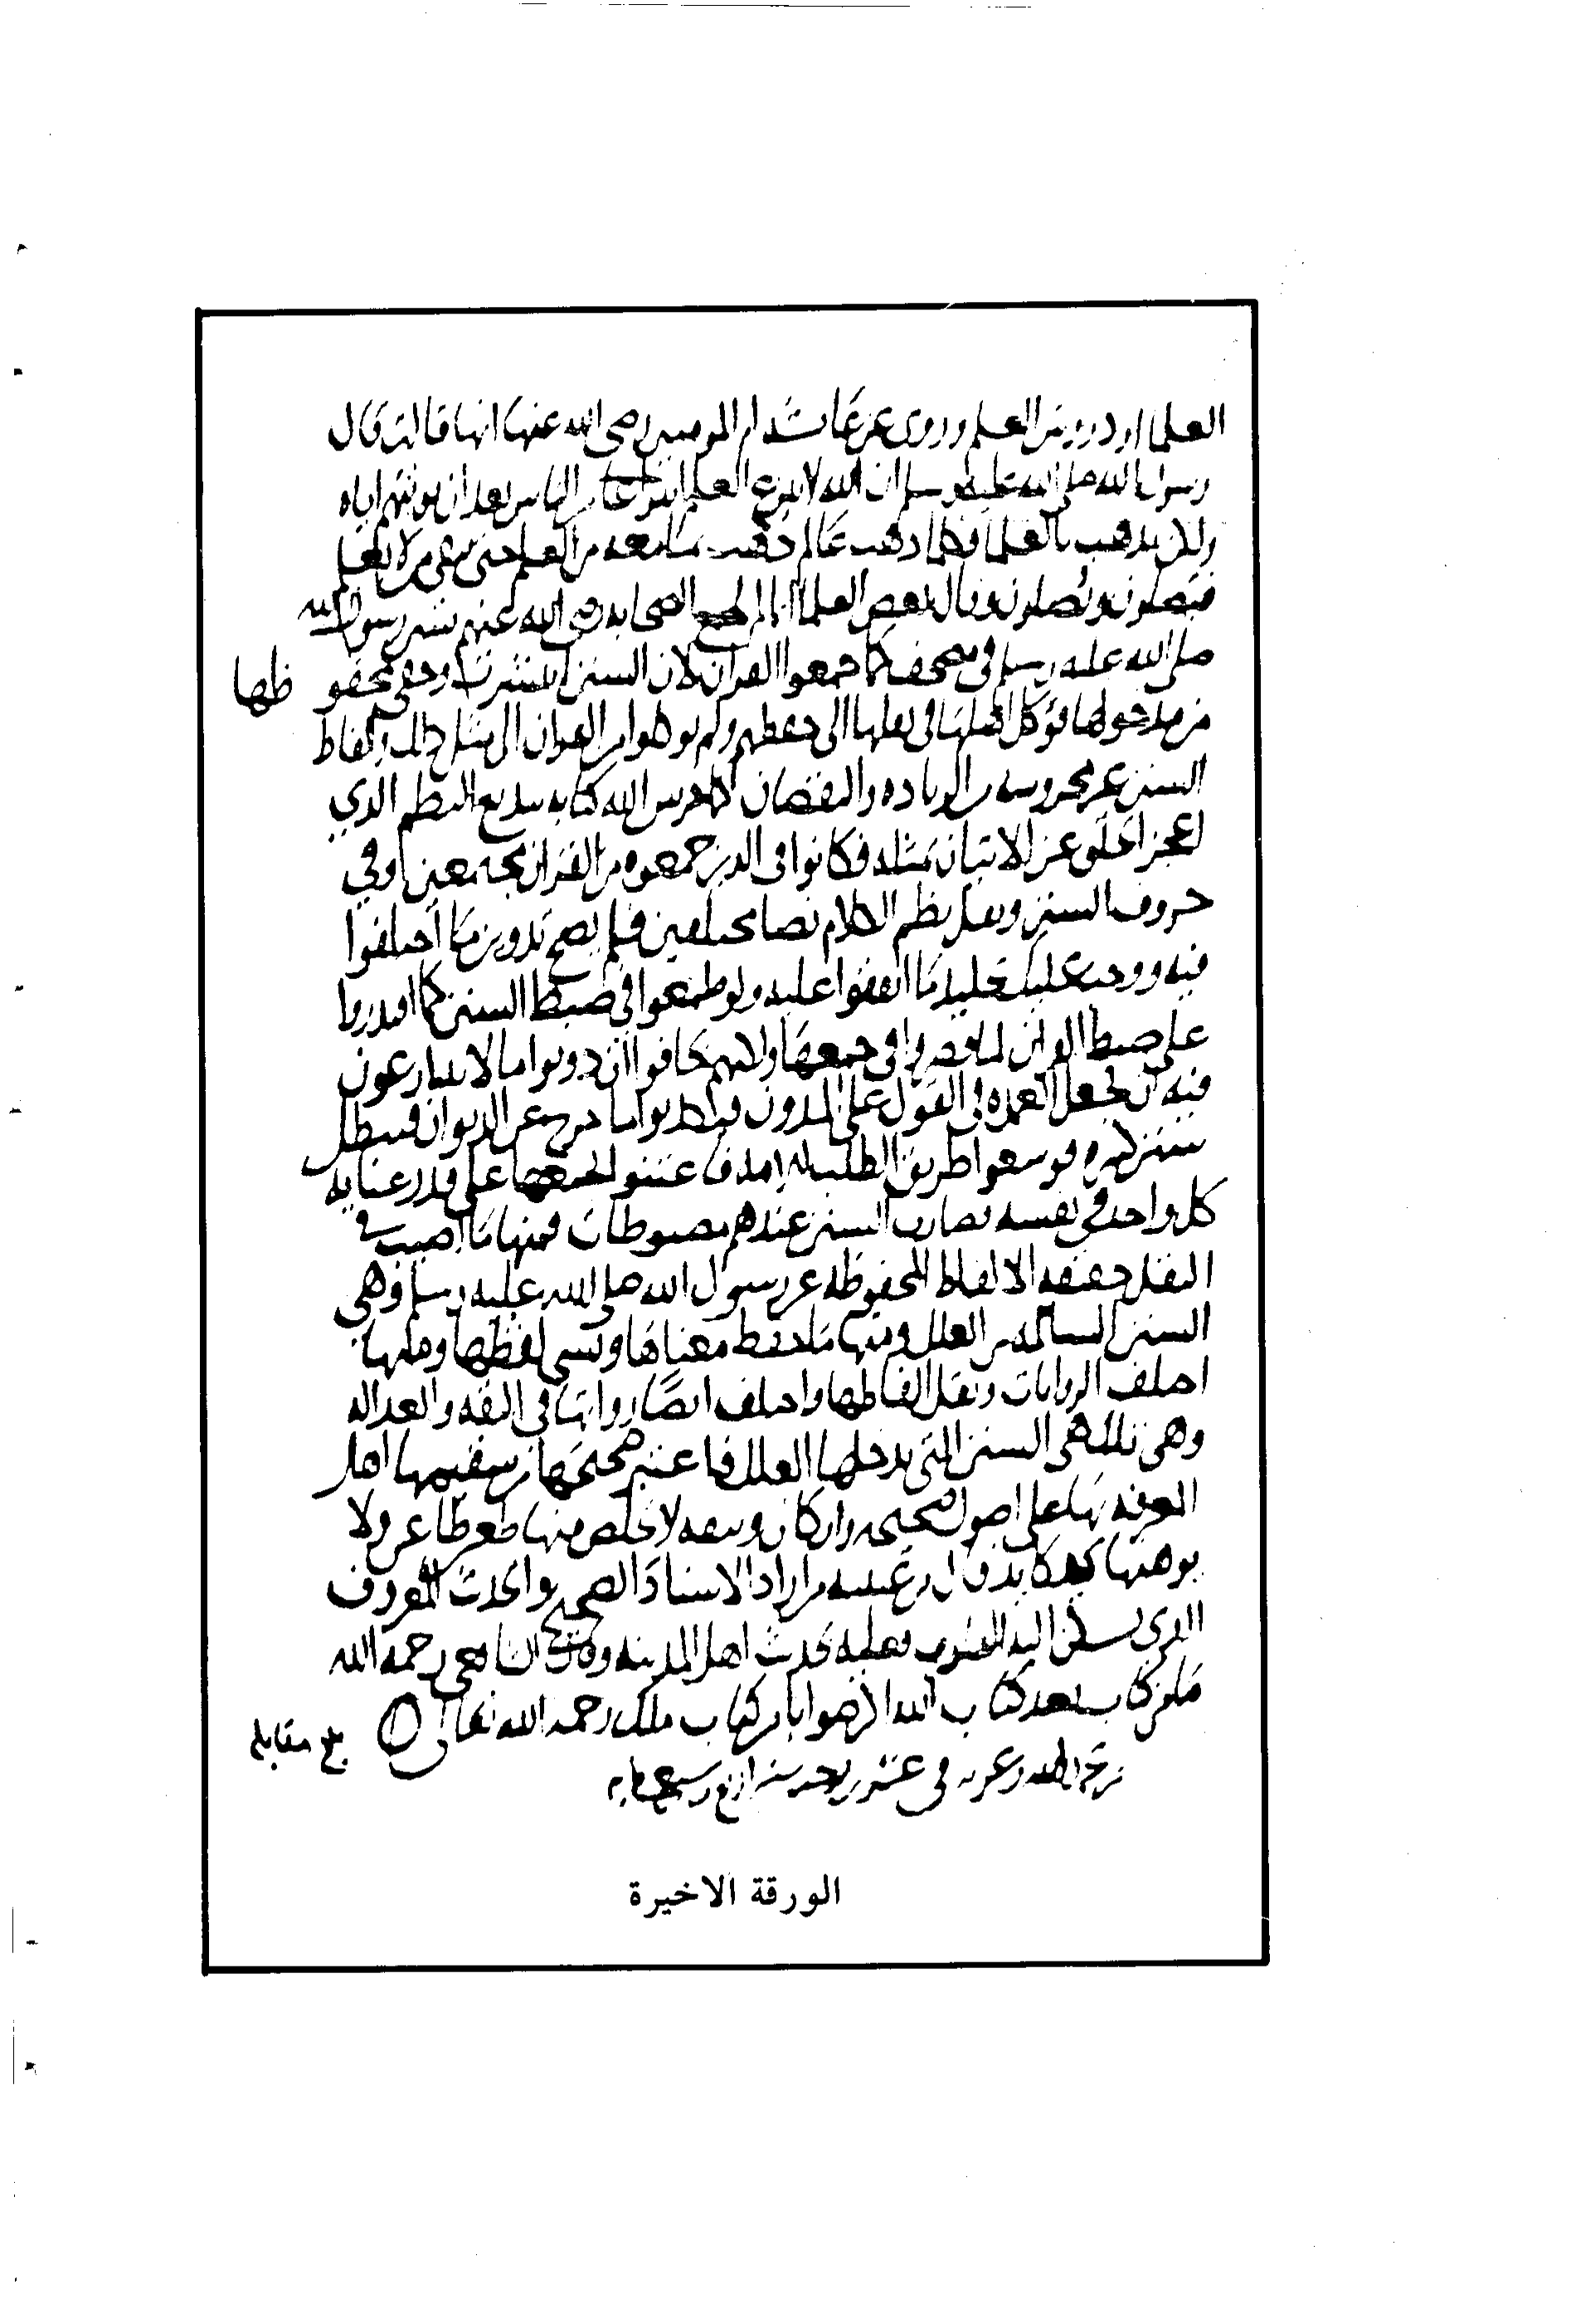 العلما او دروس العلم وروى عن عائشه ام المومنين رضى الله عنها انها قالت قال
رسول الله صلى الله عليه وسلم ان الله لا ينزع العلم انتزاعا من الناس بعد ان يوتيهم اياه
ولكن يذهب بالعلما فكلما ذهب عالم ذهب بما معه من العلم حتى يبقى من لا يعلم
فيضلون ويضلون وقال بعض العلما انما لم يجمع الصحابه رضى الله عنهم سنن رسول الله
صلى الله عليه وسلم فى مصحف كما جمعوا القران لان السنن انتشرت وخفى محفوظها
من مدخولها فوكل اهلها فى نقلها الى حفظهم ولم يوكلوا من القران الى مثل ذلك والفاظ
السنن غير محروسه من الزياده والنقصان كما حرس الله كتابه ببديع النظم الذي
اعجز الخلق عن الاتيان بمثله فكانوا فى الذين جمعوه من القران مجتمعين وفي
حروف السنن ونقل نظم الكلام نصا مختلفين فلم يصح تدوين ما اختلفوا
فيه ولو طمعوا في ضبط السنن كما اقتدروا
على ضبط القران لما قصروا فى جمعها ولكنهم خافوا ان دونوا ما لا يتنازعون
فيه ان يجعل العمده فى القول على المدون فيكذبوا ما خرج عن الديوان فتبطل
سنن كثيره فوسعوا طريق الطلب للامه فاعتنوا بجمعها على قدر عنايه
كل واحد في نفسه فصارت السنن عندهم مضبوطات فمنها ما اصيب في
النقل حقيقه الالفاظ المحفوظه عن رسول الله صلى الله عليه وسلم وهي
السنن السالمه من العلل ومنها ما حفظ معناها ونسى لفظها ومنها ما
اختلف الروايات ونقل الفاظها واختلف ايضا رواتها في الثقه والعداله
وهى تلك هى السنن التى تدخلها العلل فاعتبر صحيحها من سقيمها اهل
المعرفه بها على اصول صحيحه واركان وثيقه لا يخلص منها طعن طاعن ولا
يوهنها كيد كايد من اراد الاسناد الصحيح والحديث المعروف
الذى تسكن اليه القلوب فعليه بحديث اهل المدينه وقال الشافعي رحمه الله
ما من كتاب بعد كتاب الله اكثر صوابا من كتاب ملك رحمه الله تعالى
بلغ مقابله
الورقة الاخيرة